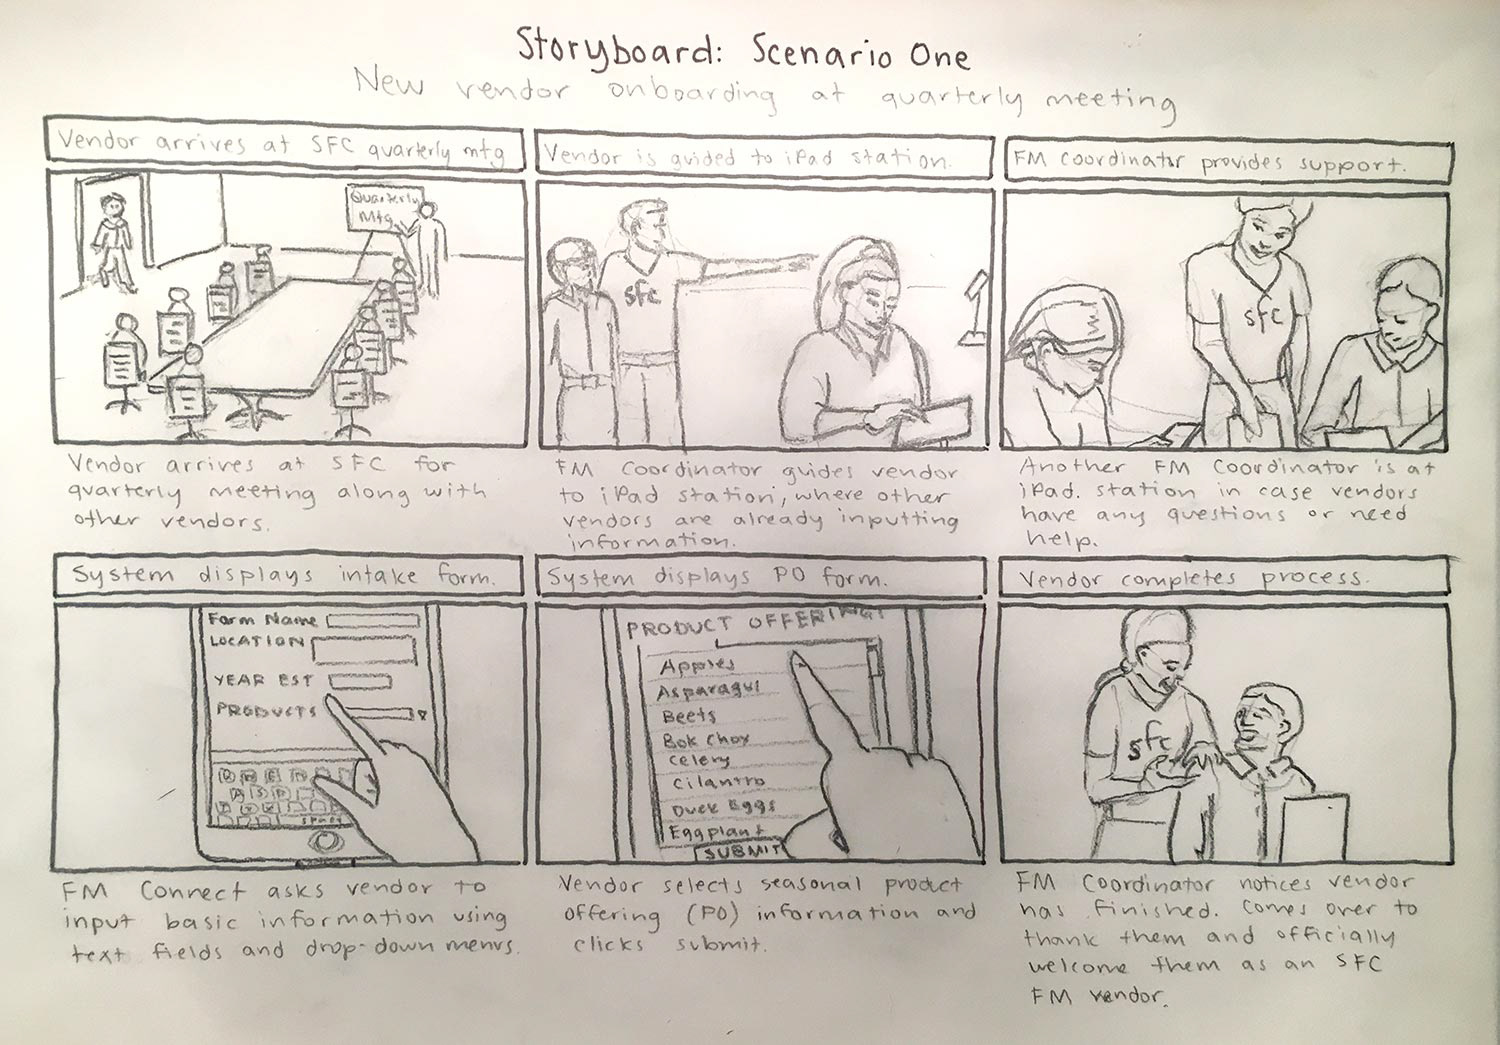 Storyboard: Scenario One
New vendor onboarding at quarterly meeting
Vendor arrives at SFC quarterly mtg
Quarterly
Mtg
Vendor arrives at SFC for
quarterly meeting along with
other vendors.
Vendor is guided to iPad station.
SFC
FM Coordinator guides vendor
to iPad station, where other
vendors are already inputting
information.
FM Coordinator provides support.
SFC
Another FM Coordinator is at
iPad. station in case vendors
have any questions or need
help.
System displays intake form.
Farm Name
LOCATION
YEAR EST
PRODUCTS
FM Connect asks vendor to
input basic information using
text fields and drop-down menus.
System displays PO form.
PRODUCT OFFERING:
Apples
Asparagus
Beets
Bok Choy
Celery
Cilantro
Duck Eggs
Eggplant
SUBMIT
Vendor selects seasonal product
offering (PO) information and
clicks submit.
Vendor completes process.
SFC
FM Coordinator notices vendor
has finished. Comes over to
thank them and officially
welcome them as an SFC
FM vendor.